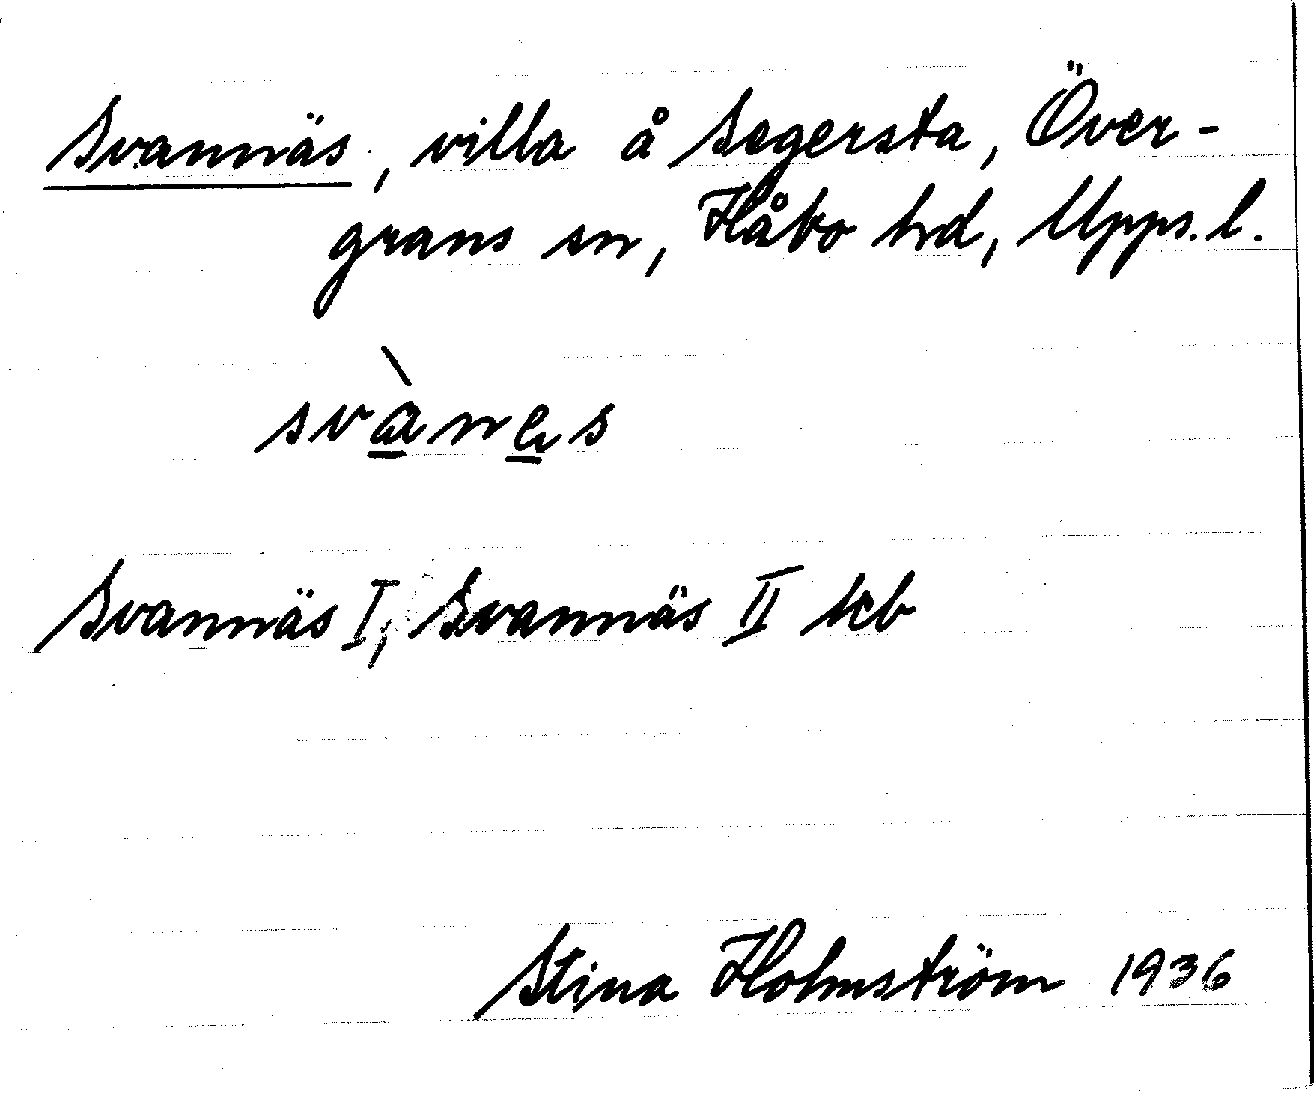 Svannäs, villa å Segersta, Över-
grans sn, Håbo hd, Upps. l.
svànes
Svannäs I, Svannäs II kb
Stina Holmström 1936